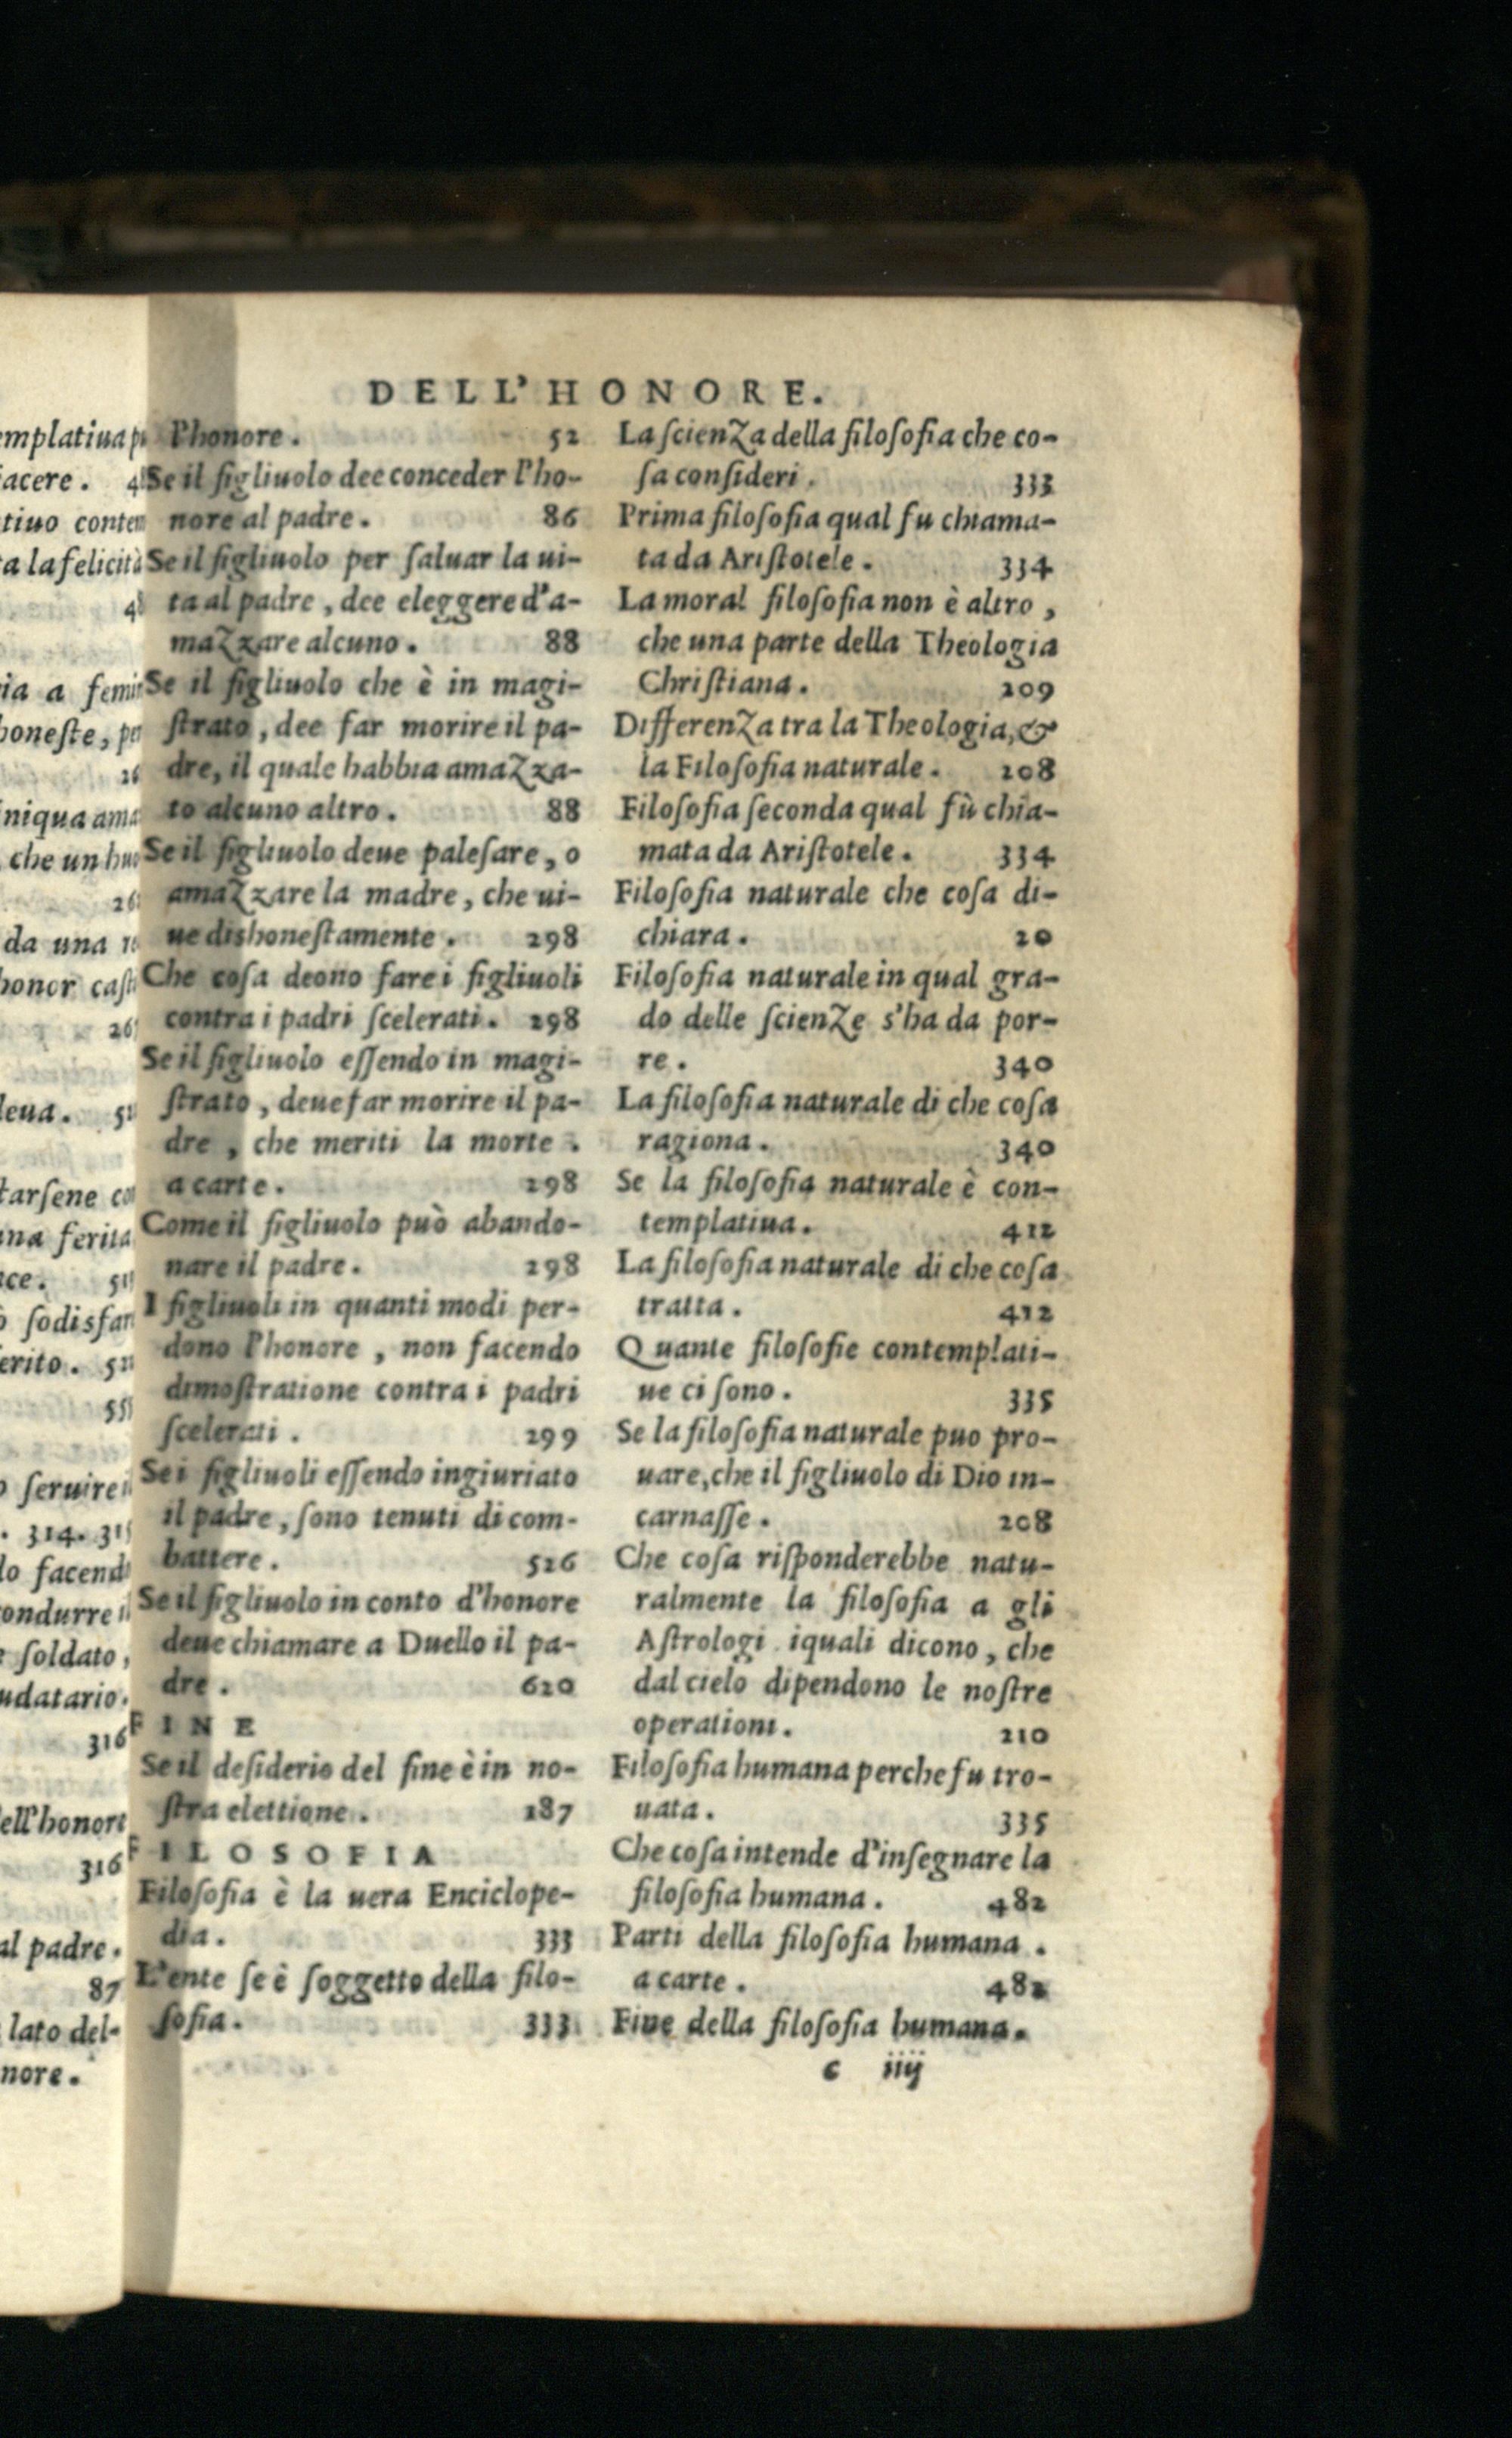 DELL'HONORE.
l'honore. 52
Se il figliuolo dee conceder l'ho-
nore al padre. 86
Se il figliuolo per ſaluar la ui-
ta al padre, dee eleggere d'a-
mazzare alcuno. 88
Se il figliuolo che è in magi-
ſtrato, dee far morire il pa-
dre, il quale habbia amazza-
to alcuno altro. 88
Se il figliuolo deue paleſare, o
amazzare la madre, che ui-
ue dishoneſtamente. 298
Che coſa deono fare i figliuoli
contra i padri ſcelerati. 298
Se il figliuolo eſſendo in magi-
ſtrato, deue far morire il pa-
dre, che meriti la morte.
a carte. 298
Come il figliuolo può abando-
nare il padre. 298
I figliuoli in quanti modi per-
dono l'honore, non facendo
dimoſtratione contra i padri
ſcelerati. 299
Se i figliuoli eſſendo ingiuriato
il padre, ſono tenuti di com-
battere. 526
Se il figliuolo in conto d'honore
deue chiamare a Duello il pa-
dre. 620
FINE
Se il deſiderio del fine è in no-
ſtra elettione. 187
FILOSOFIA
Filoſofia è la uera Enciclope-
dia. 333
L'ente ſe è ſoggetto della filo-
ſofia. 333
La ſcienza della filoſofia che co-
ſa conſideri. 333
Prima filoſofia qual fu chiama-
ta da Ariſtotele. 334
La moral filoſofia non è altro,
che una parte della Theologia
Chriſtiana. 209
Differenza tra la Theologia, &
la Filoſofia naturale. 208
Filoſofia ſeconda qual fù chia-
mata da Ariſtotele. 334
Filoſofia naturale che coſa di-
chiara. 20
Filoſofia naturale in qual gra-
do delle ſcienze s'ha da por-
re. 340
La filoſofia naturale di che coſa
ragiona. 340
Se la filoſofia naturale è con-
templatiua. 412
La filoſofia naturale di che coſa
tratta. 412
Quante filoſofie contemplati-
ue ci ſono. 335
Se la filoſofia naturale puo pro-
uare, che il figliuolo di Dio in-
carnaſſe. 208
Che coſa riſponderebbe natu-
ralmente la filoſofia a gli
Aſtrologi iquali dicono, che
dal cielo dipendono le noſtre
operationi. 210
Filoſofia humana perche fu tro-
uata. 335
Che coſa intende d'inſegnare la
filoſofia humana. 482
Parti della filoſofia humana.
a carte. 482
Fine della filoſofia humana.
c iiij